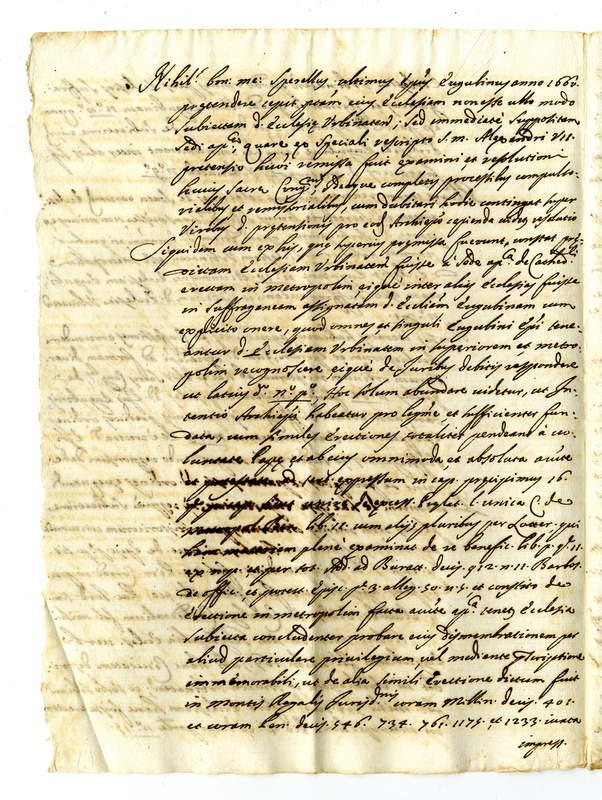 Nihil.s bon: me: Sperellus ultimus Epũs Eugubinus anno 1660.
prętendere cepit ptam eius Ecclesiam non esse ullo modo
subiectam d. Ecclesię Urbinaten, sed immediatè suppositam
Sedi ap.cę, quare ex speciali rescripto S. m. Alexandri VII
pretensio huiusmodi remissa fuit examini et resolutioni
huius Sacrę Cong.nis, Ideoque completis processibus compulso-
rialibus et remissorialibus, cum dubitari hodie contingat super
viribus d. prętensionis pro eod Archiepõ capienda videt resolutio
Siquidem cum ex his, quę superius pręmissa fuerunt, constet prę-
dictam Ecclesiam Urbinatem fuisse à Sede ap.ca de Cathed.li
erectam in metropolim eique inter alias Ecclesias fuisse
in suffraganeam assignatam d. Ecclĩam Eugubinam cum
expresso onere, quod omnes et singuli Eugubini Epĩ tene-
antur d. Ecclesiam Urbinatem in superiorem et metro-
polim recognoscere eique de Iuribus debitis respondere
ut latius d.o n.o p.o Hoc solum abundare videtur, ut In-
tentio Archiepĩ habeatur pro legme et sufficienter fun-
data, cum similes erectiones totaliter pendeant à vo-
luntate Papę et ab eius omnimoda et absoluta aucte
expressum in cap. pręcipimus 16.
l. unica C. de
lib. 11. cum alijs pluribus per Lotter. qui
plenè examinat de re benefic. lib. p. q. 11.
ex n. p. et per tot. Add. ad Buratt. decis. 912. n. 11. Barbos.
de offic. et potest. Episc. p. 3. alleg. 50. n. 5. et constito de
erectione in metropolim facta aucte ap.ca tenet Ecclesia
subiecta concludenter probare eius dismembrationem per
aliud particulare privilegium, vel mediante pscriptione
immemorabili, ut de alia simili erectione dictum fuit
in Montis Regalis Jurisd.nis coram Millin. decis. 401.
et coram Cen. decis. 546. 734. 761. 1175. et 1233. iuxta
impress.